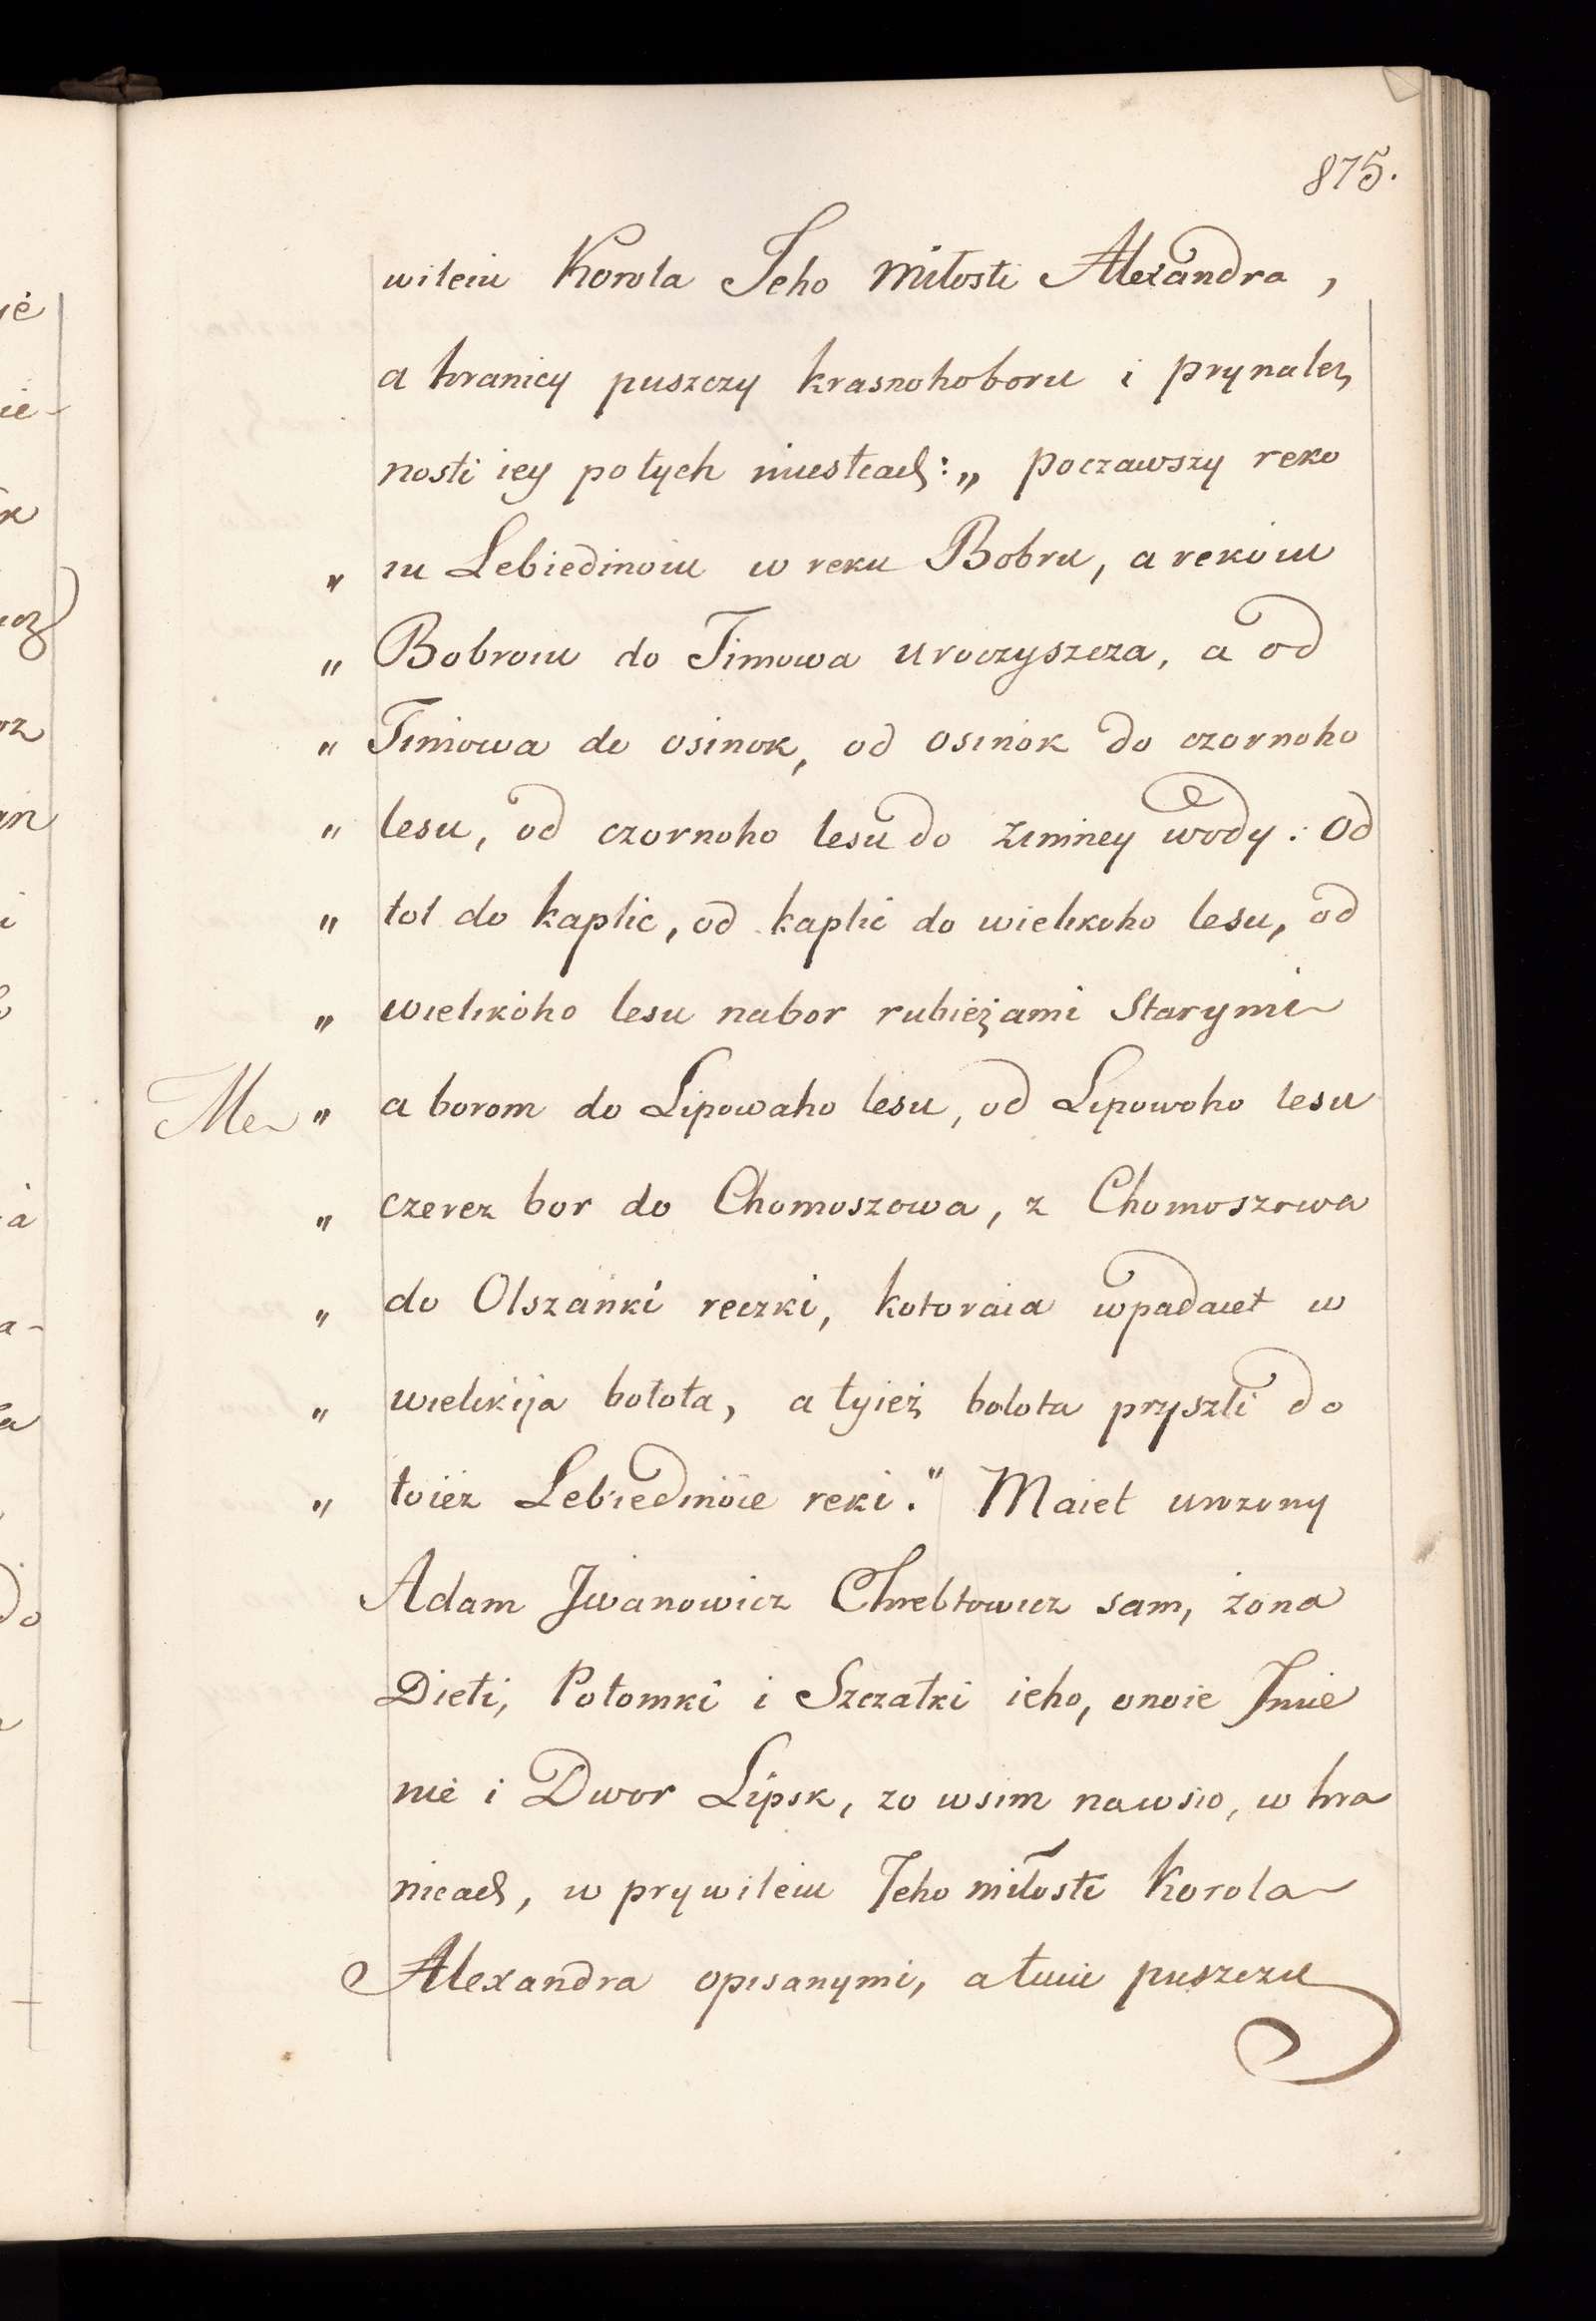 875.
wileiu Korola Jeho Miłosti Alexandra,
a hranicy puszczy krasnohoboru i prynależ
nosti iey po tych miestcach: „ poczawszy reko
„ iu Lebiedinoiu w reku Bobru, a rekoiu
„ Bobroiu do Timowa uroczyszcza, a od
„ Timowa do osinok, od osinok do czornoho
„ lesu, od czornoho lesu do zimney wody: od
„ tol do kaplic, od kaplic do wielikoho lesu, od
„ wielikoho lesu nabor rubieżami Starymi
Me „ a borom do Lipowaho lesu, od Lipowoho lesu
„ czerez bor do Chomoszowa, z Chomoszowa
„ do Olszanki reczki, kotoraia wpadaiet w
„ wielikija bołota, a tyież bolota pryszli do
„ toież Lebiedinoie reki." Maiet urozony
Adam Jwanowicz Chrebtowicz sam, żona
Dieti, Potomki i Szczatki ieho, onoie Jmie
nie i Dwor Lipsk, zo wsim nawsio, w hra
nicach, w prywileiu Jeho miłosti Korola
Alexandra opisanymi, a tuiu puszczu